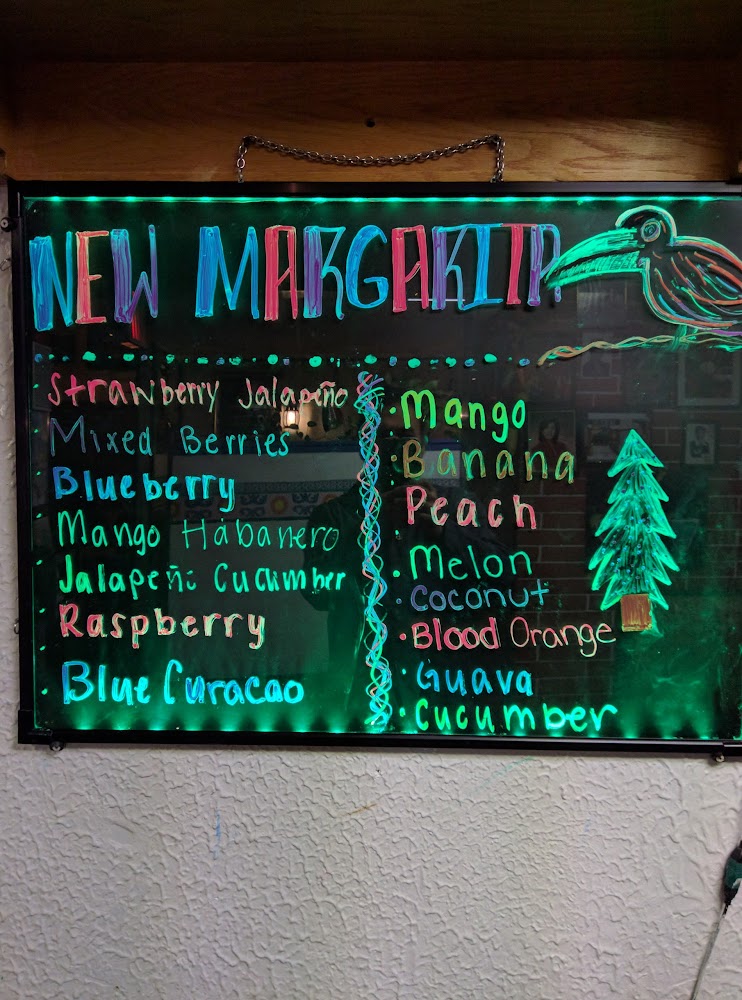 NEW MARGARITA
Strawberry Jalapeño
Mixed Berries
Blueberry
Mango Habanero
Jalapeño Cucumber
Raspberry
Blue Curacao
Mango
Banana
Peach
Melon
Coconut
Blood Orange
Guava
Cucumber